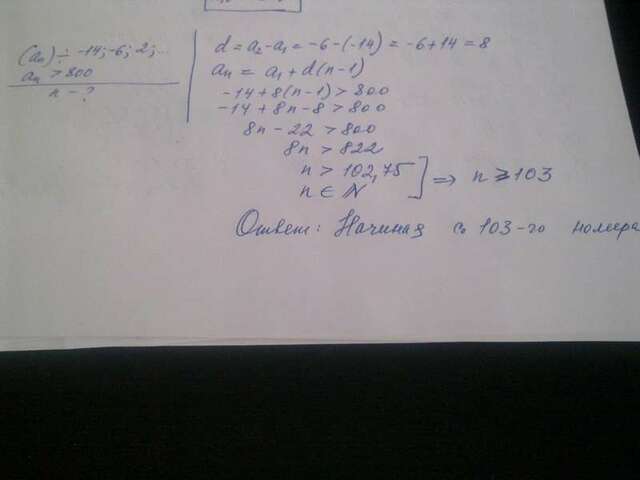 (aₙ) ÷ -14; -6; 2; ...
aₙ > 800
n - ?
d = a₂ - a₁ = -6 - (-14) = -6 + 14 = 8
aₙ = a₁ + d(n-1)
-14 + 8(n-1) > 800
-14 + 8n - 8 > 800
8n - 22 > 800
8n > 822
n > 102,75
n ∈ N ] ⇒ n ≥ 103
Ответ: Начиная с 103-го номера